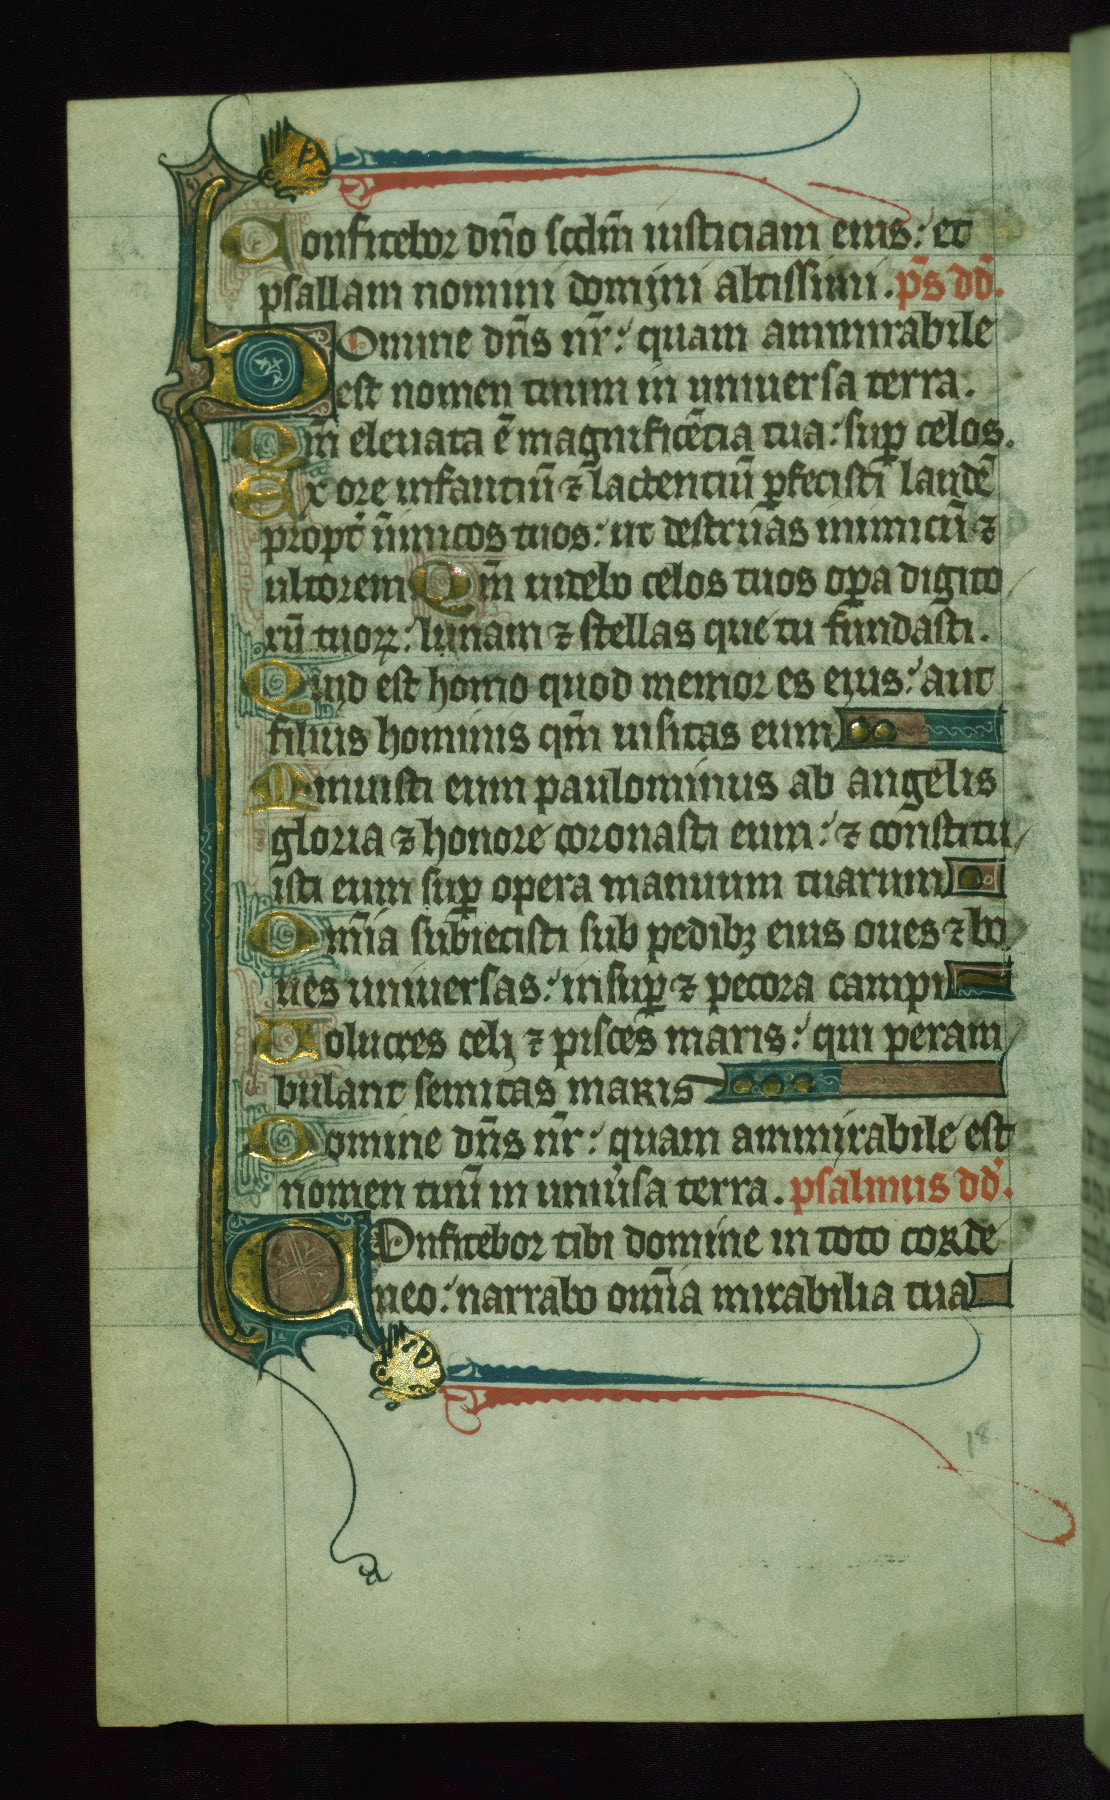 Confitebor dn̄o scd̄m iusticiam eius: et
psallam nomini domini altissimi. p̄s dd̄.
Domine dn̄s nr̄: quam ammirabile
est nomen tuum in uniuersa terra.
Qm̄ eleuata ē magnificēcia tua: suꝑ celos.
Ex ore infanciū ⁊ lactenciū ꝑfecisti laudē
propt̄ inimicos tuos: ut destruas inimicū ⁊
ultorem Qm̄ uidebo celos tuos oꝑa digito
rū tuoꝝ: lunam ⁊ stellas que tu fundasti.
Quid est homo quod memor es eius: aut
filius hominis qm̄ uisitas eum
Minuisti eum paulominus ab angelis
gloria ⁊ honore coronasti eum: ⁊ constitu
isti eum suꝑ opera manuum tuarum
Om̄ia subiecisti sub pedibꝫ eius oues ⁊ bo
ues uniuersas: insuꝑ ⁊ pecora campi
Volucres celi ⁊ pisces maris: qui peram
bulant semitas maris
Domine dn̄s nr̄: quam ammirabile est
nomen tuū in uniu̾sa terra. psalmus dd̄.
Confitebor tibi domine in toto corde
meo: narrabo om̄ia mirabilia tua
18